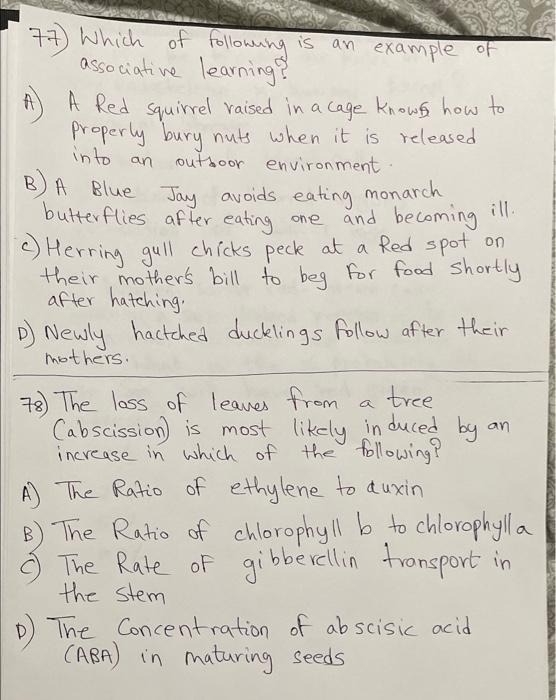 77) Which of following is an example of
associative learning?
A) A Red squirrel raised in a cage knows how to
properly bury nuts when it is released
into an outdoor environment.
B) A Blue Jay avoids eating monarch
butterflies after eating one and becoming ill.
C) Herring gull chicks peck at a Red spot on
their mother's bill to beg for food shortly
after hatching.
D) Newly hactched ducklings follow after their
mothers.
78) The loss of leaves from a tree
(abscission) is most likely induced by an
increase in which of the following?
A) The Ratio of ethylene to auxin
B) The Ratio of chlorophyll b to chlorophyll a
C) The Rate of gibberellin transport in
the stem
D) The Concentration of abscisic acid
(ABA) in maturing seeds